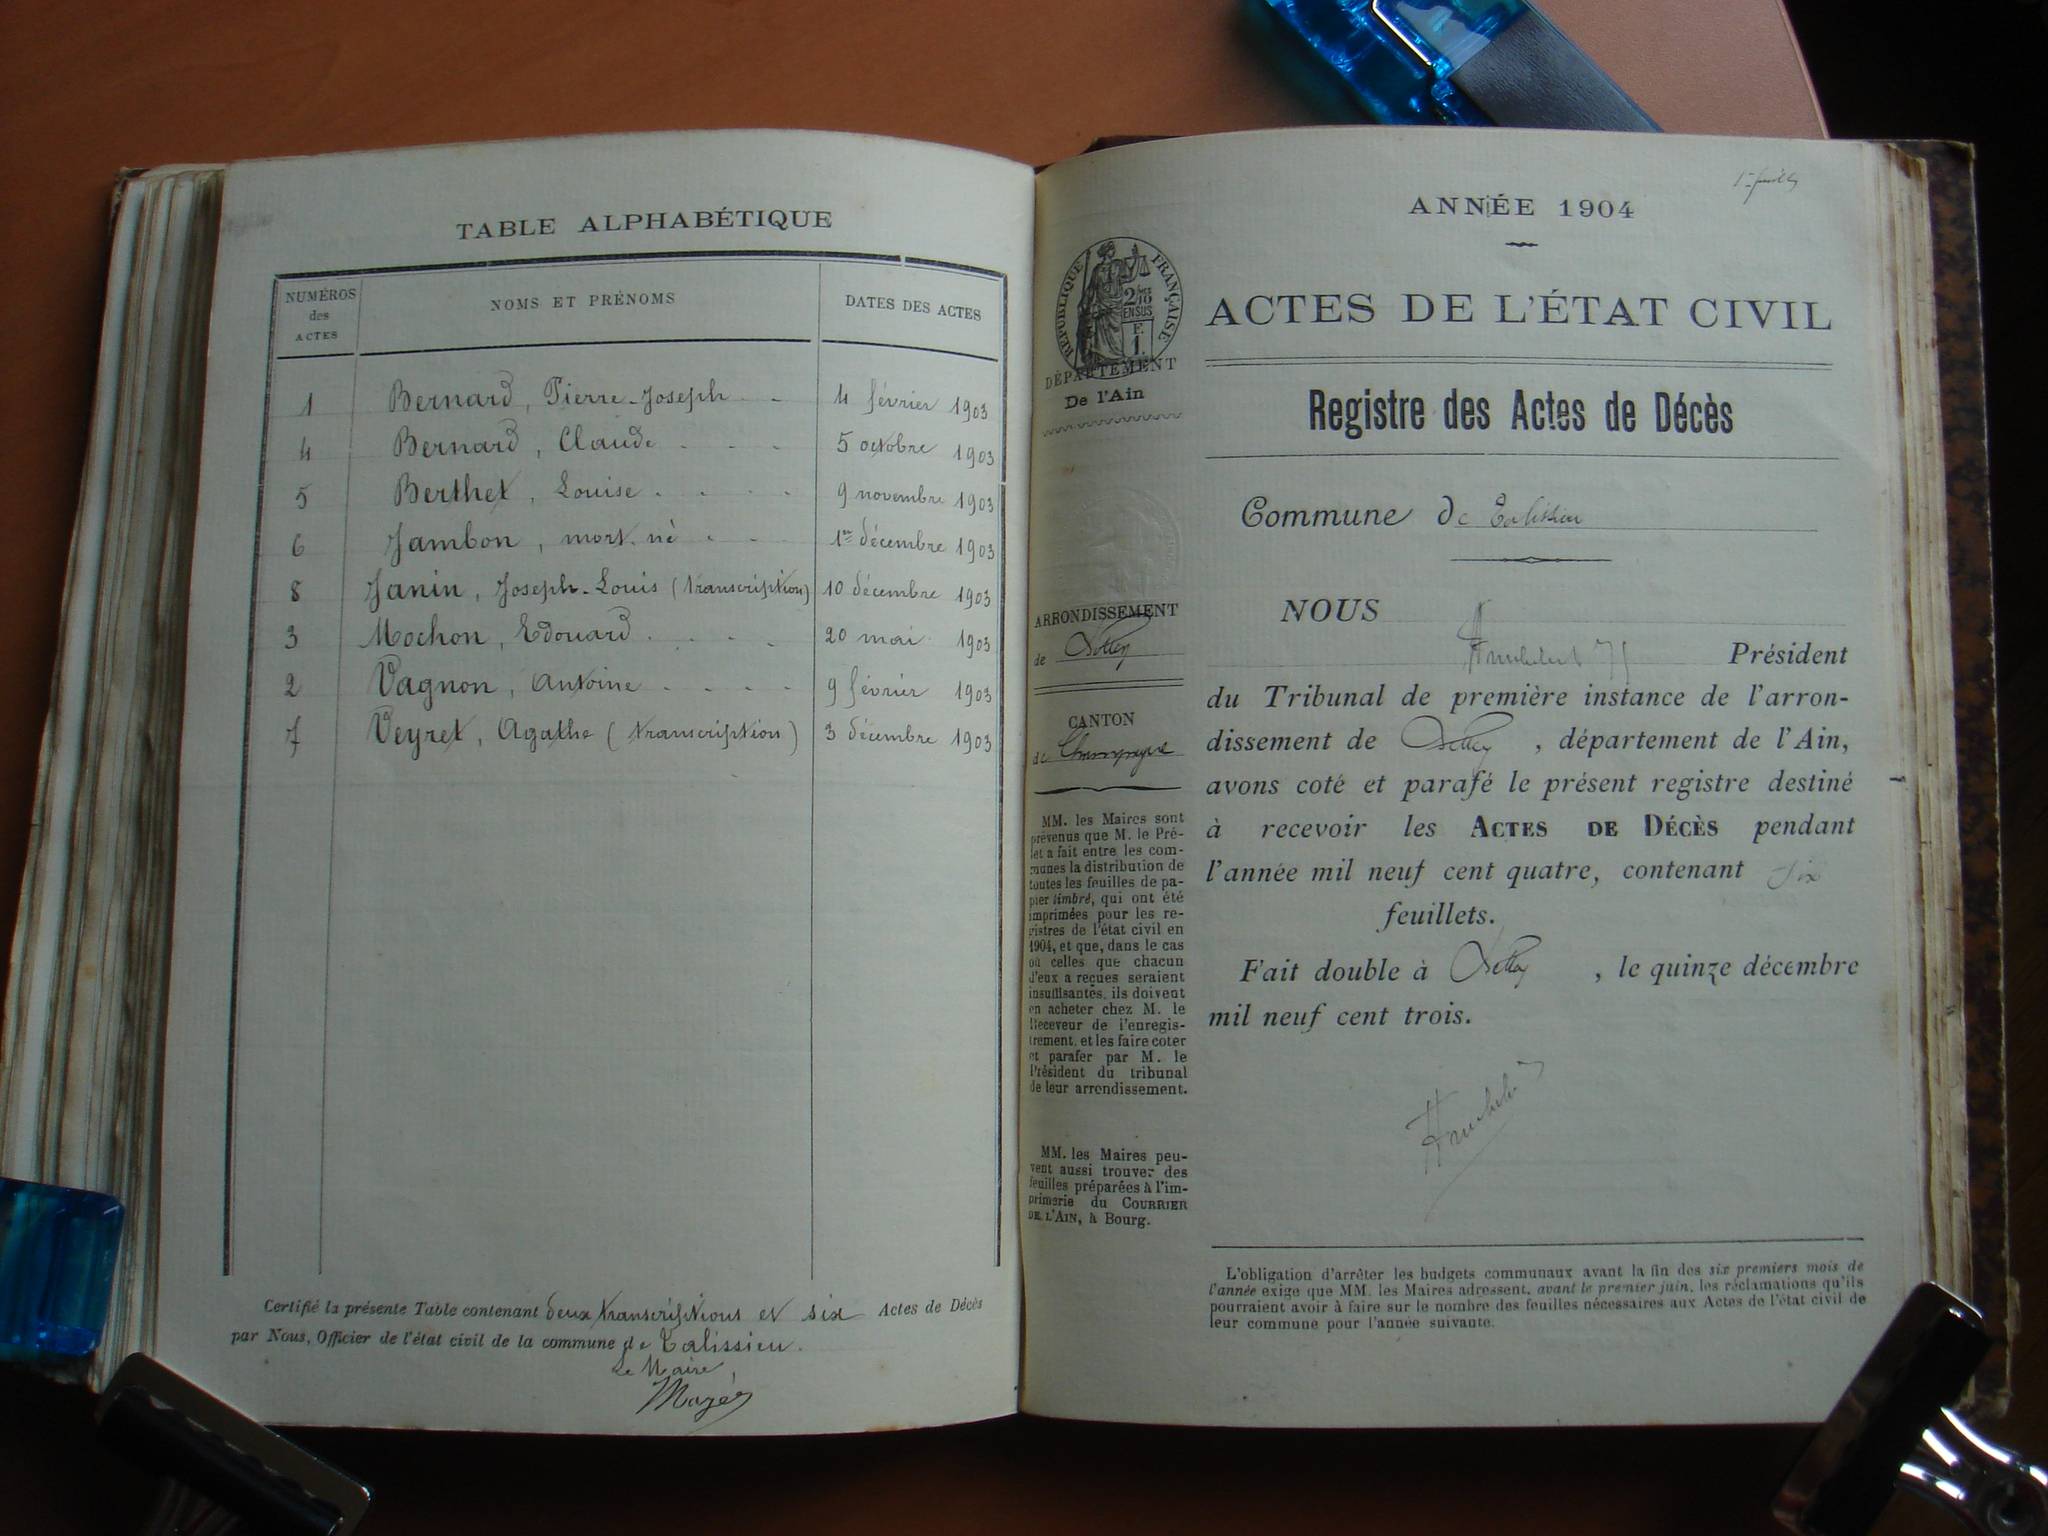 TABLE ALPHABÉTIQUE
NUMÉROS des ACTES NOMS ET PRÉNOMS DATES DES ACTES
1 Bernard, Pierre-Joseph 4 février 1903
4 Bernard, Claude 5 octobre 1903
5 Berthet, Louise 9 novembre 1903
6 Jambon, mort-né 1er décembre 1903
8 Janin, Joseph-Louis (transcription) 10 décembre 1903
3 Mochon, Edouard 20 mai 1903
2 Vagnon, Antoine 9 février 1903
7 Veyret, Agathe (transcription) 3 décembre 1903
Certifié la présente Table contenant deux transcriptions et six Actes de Décès
par Nous, Officier de l'état civil de la commune de Talissieu.
Le Maire,
ANNÉE 1904
RÉPUBLIQUE FRANÇAISE
2/10 EN SUS
F. 1.
DÉPARTEMENT
De l'Ain
ACTES DE L'ÉTAT CIVIL
Registre des Actes de Décès
Commune de Talissieu
ARRONDISSEMENT
de Belley
CANTON
de Champagne
MM. les Maires sont
prévenus que M. le Pré-
fet a fait entre les com-
munes la distribution de
toutes les feuilles de pa-
pier timbré, qui ont été
imprimées pour les re-
gistres de l'état civil en
1904, et que, dans le cas
où celles que chacun
d'eux a reçues seraient
insuffisantes, ils doivent
en acheter chez M. le
Receveur de l'enregis-
trement, et les faire coter
et parafer par M. le
Président du tribunal
de leur arrondissement.
MM. les Maires peu-
vent aussi trouver des
feuilles préparées à l'im-
primerie du COURRIER
DE L'AIN, à Bourg.
NOUS
Président
du Tribunal de première instance de l'arron-
dissement de Belley, département de l'Ain,
avons coté et parafé le présent registre destiné
à recevoir les ACTES DE DÉCÈS pendant
l'année mil neuf cent quatre, contenant six
feuillets.
Fait double à Belley, le quinze décembre
mil neuf cent trois.
L'obligation d'arrêter les budgets communaux avant la fin des six premiers mois de
l'année exige que MM. les Maires adressent, avant le premier juin, les réclamations qu'ils
pourraient avoir à faire sur le nombre des feuilles nécessaires aux Actes de l'état civil de
leur commune pour l'année suivante.